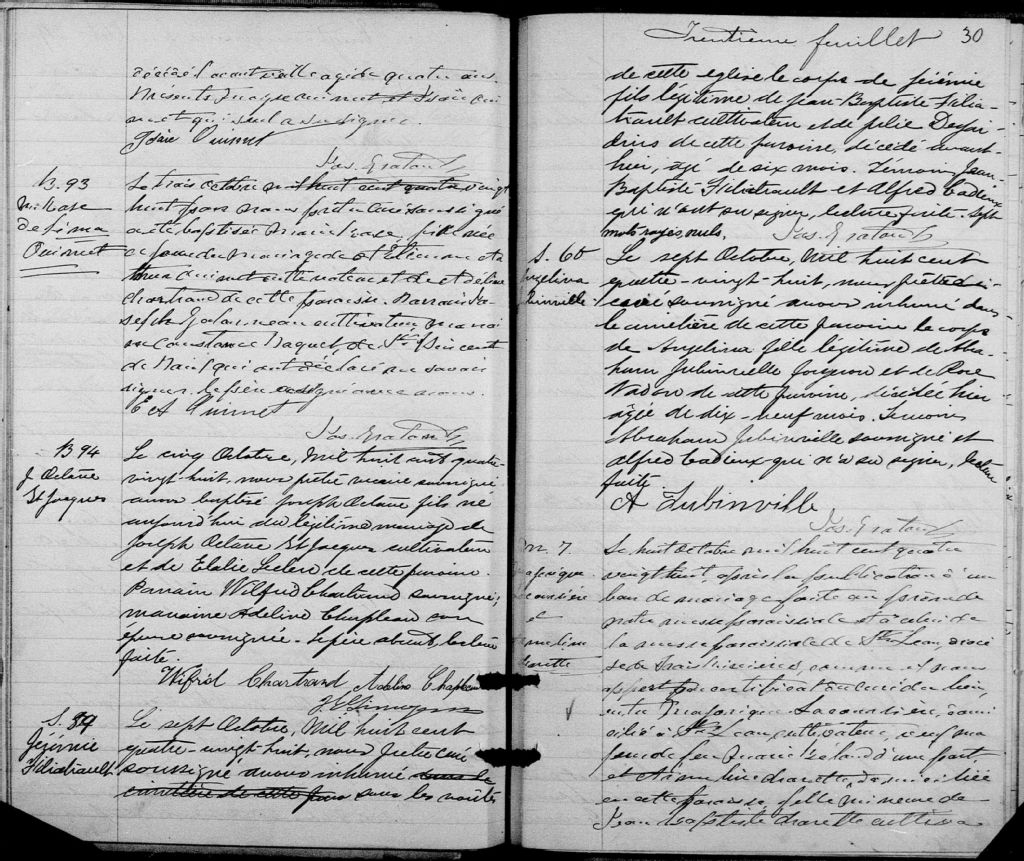 décédé avant veille agé de quatre ans.
Présents Jacques Ouimet et Isaïe Oui
met qui seul a su signer.
Isaïe Ouimet
Jos. Graton Ptr
B. 93
M. Rose
Ouimet
Le trois octobre mil huit cent quatre vingt
huit par nous prêtre curé soussigné
a été baptisée Marie Rose, fille née
ce jour du mariage de
cultivateur et de
Chartrand de cette paroisse. Parrain Jo-
seph cultivateur, marrai
ne Constance Paquet, de St. Vincent
de Paul qui ont déclaré ne savoir
signer. le père a signé avec nous.
E A Ouimet
Jos. Graton Ptr
B 94
J. Octave
St Jacques
Le cinq Octobre, Mil huit cent quatre-
vingt-huit, nous prêtre vicaire soussigné
avons baptisé Joseph Octave fils né
aujourd'hui du légitime mariage de
Joseph Octave St Jacques cultivateur
et de Elalie Leclerc de cette paroisse.
Parrain Wilfrid Chartrand soussigné;
marraine Adeline Chapleau son
épouse soussignée. Le père absent, lecture
faite.
Wilfrid Chartrand Adeline Chapleau
S. 59
Jérémie
Filiatrault
Le sept Octobre, Mil huit cent
quatre-vingt-huit, nous Ptre curé
soussigné avons inhumé sous le
cimetière de cette paro sous les voûtes
Trentième feuillet 30
de cette église le corps de Jérémie
fils légitime de Jean-Baptiste Filia-
trault cultivateur et de Julie Desjar-
dins de cette paroisse, décédé avant-
hier, agé de six mois. Témoins Jean
Baptiste Filiatrault et Alfred Cadieux
qui n'ont su signer, lecture faite. Sept
mots rayés nuls.
Jos. Graton Ptr
S. 60
Angelina
Jubinville
Le sept Octobre, Mil huit cent
quatre-vingt-huit, nous prêtre vi-
caire soussigné avons inhumé dans
le cimetière de cette paroisse le corps
de Angelina fille légitime de Abra-
ham Jubinville forgeron et de Rose
Nadon de cette paroisse, décédée hier
âgée de dix-neuf mois. Témoins
Abraham Jubinville soussigné et
Alfred Cadieux qui n'a su signer, lecture
faite
A Jubinville
Jos. Graton Ptr
M. 7.
et
Le huit Octobre mil huit cent quatre
vingt huit, après la publication d'un
ban de mariage faite au prône de
notre messe paroissiale et à celui de
la messe paroissiale de
se de Trois Rivières, comme il nous
appert par certificat du curé du lieu,
entre domi
cilié à cultivateur, veuf ma
jeur de feu d'une part,
et domiciliée
en cette paroisse fille mineure de
Jean Baptiste cultiva